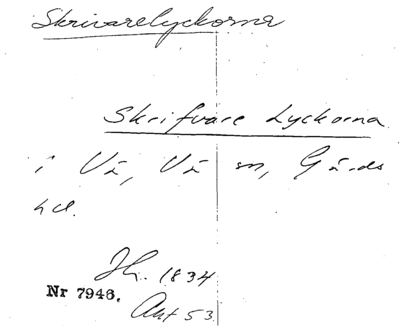 Skrivarelyckorna
Skrifvare Lyckorna
i Vä, Vä sn, Gärds
hd.
Jh. 1834
Nr 7946.
Akt 53